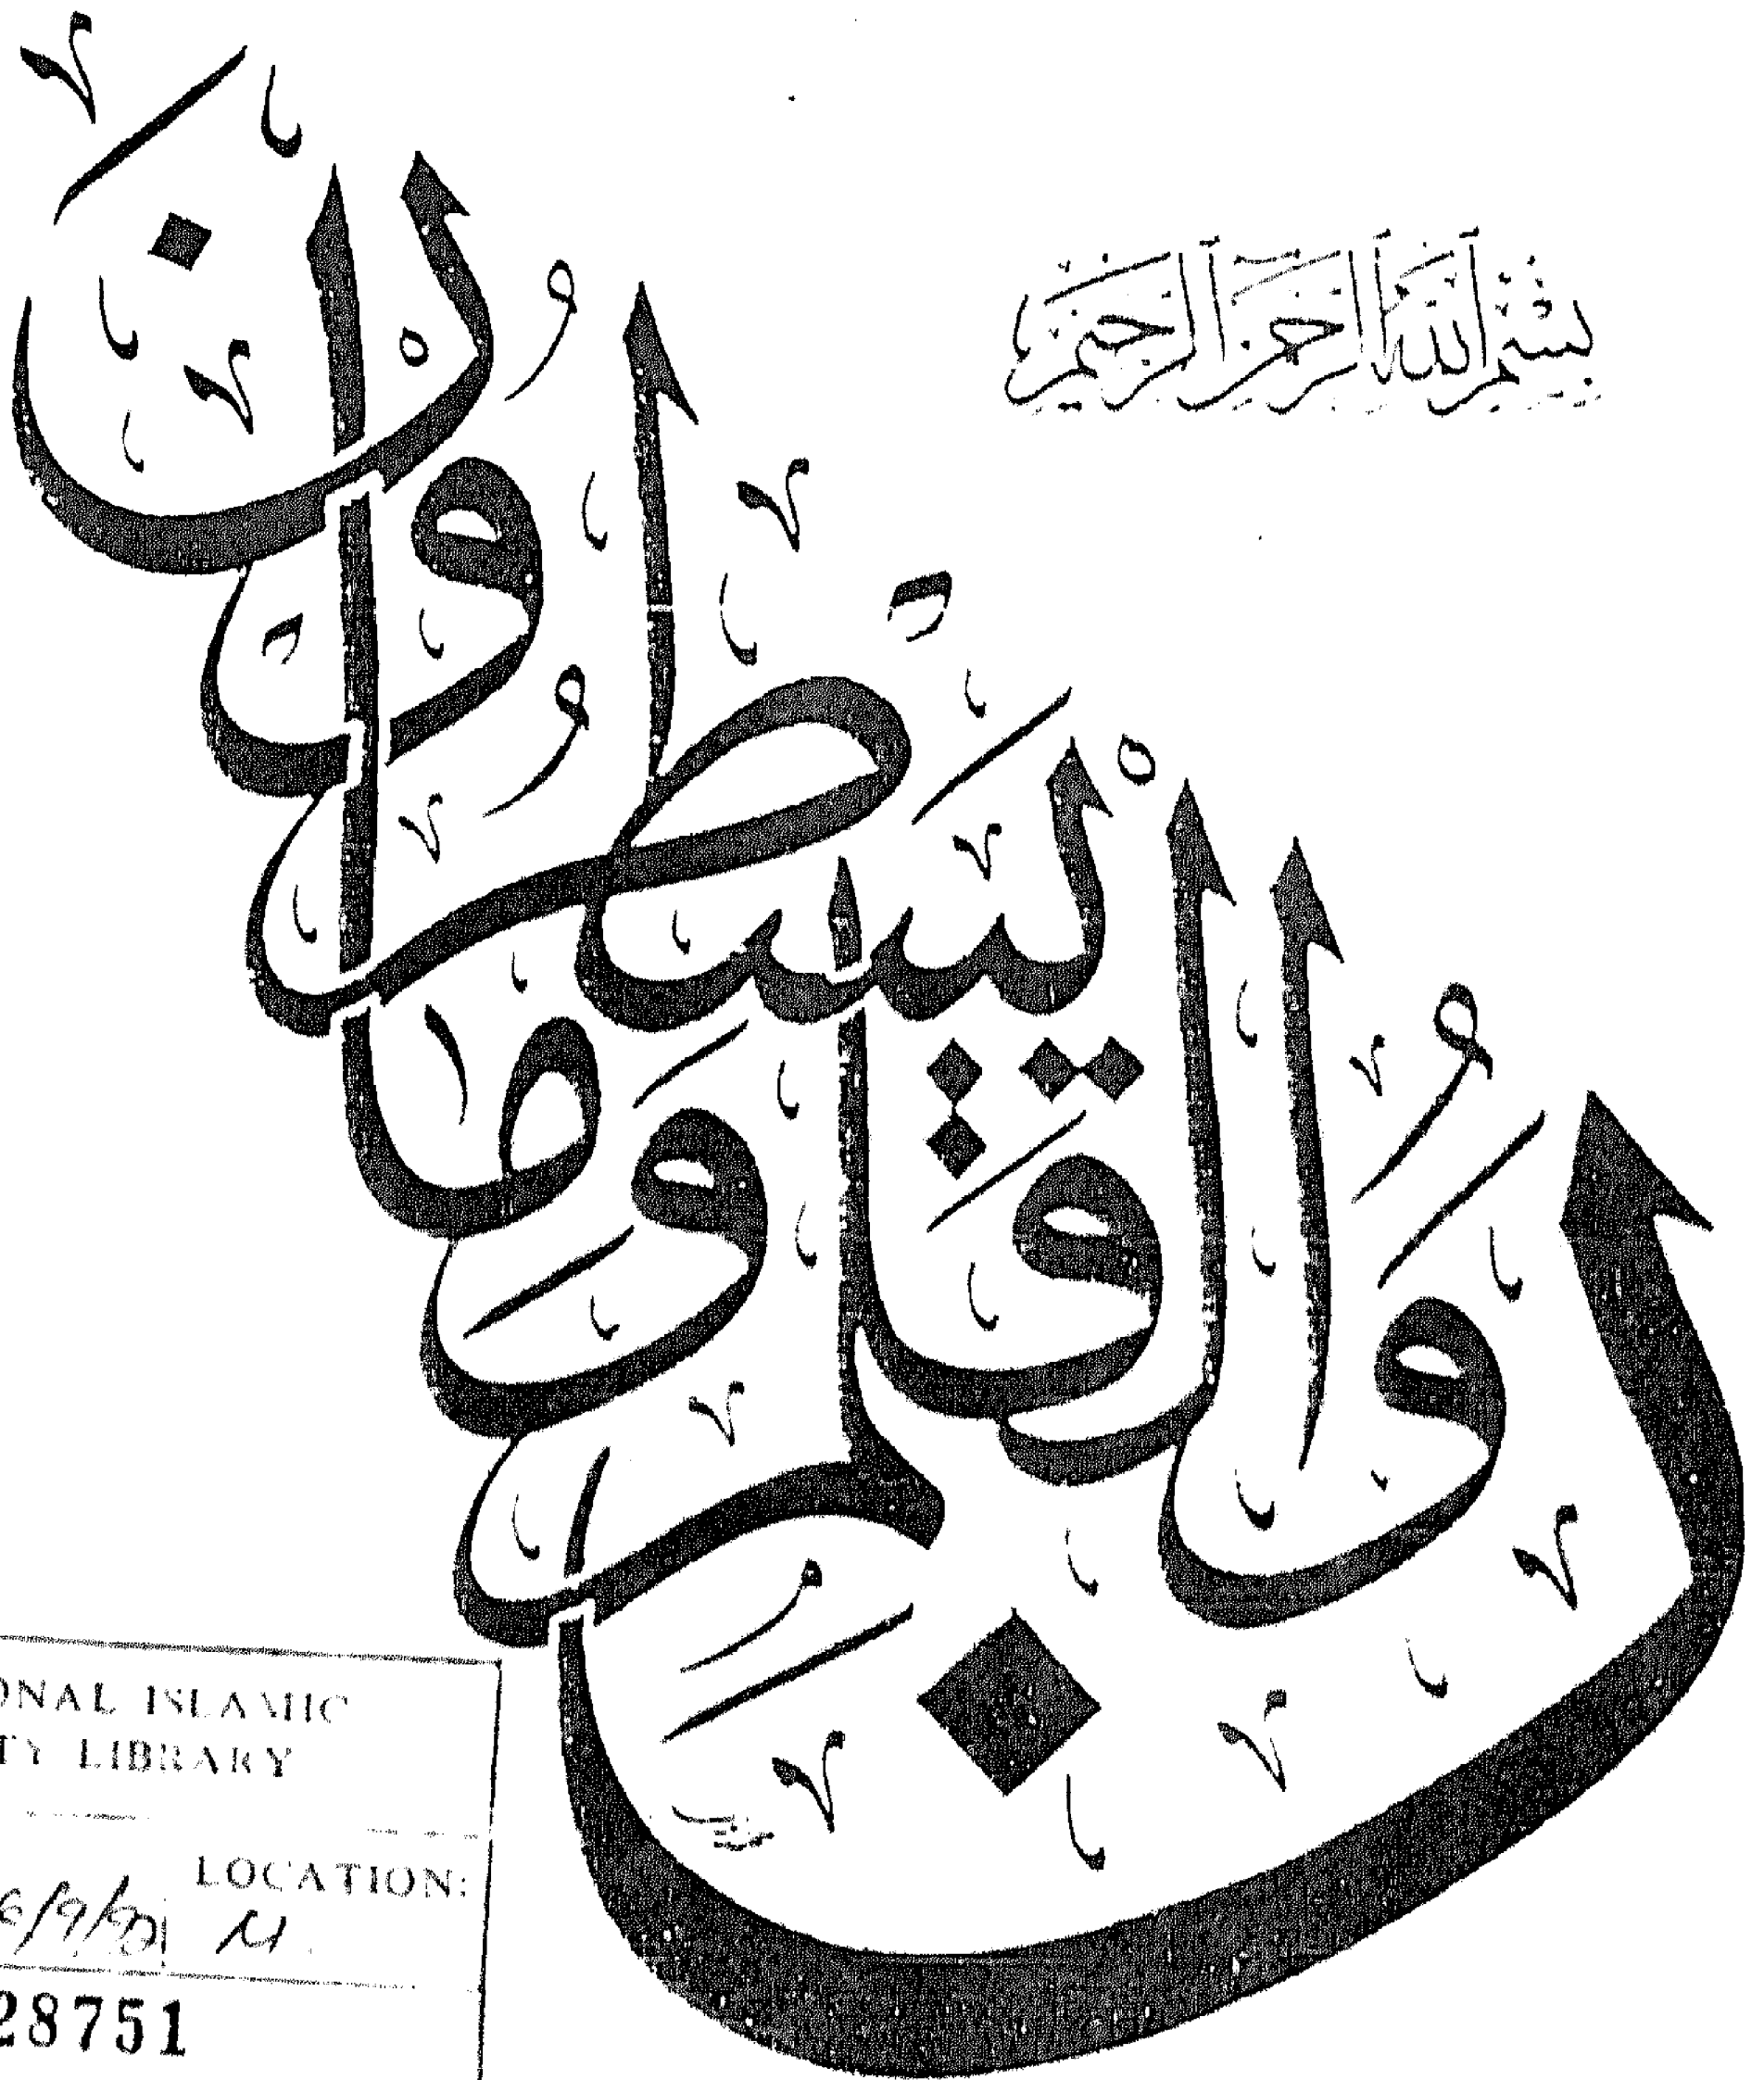 بِسْمِ ٱللَّهِ ٱلرَّحْمَٰنِ ٱلرَّحِيمِ
نۤ وَالْقَلَمِ وَمَا يَسْطُرُونَ
ONAL ISLAMIC
TY LIBRARY
LOCATION:
6/9/90 M
28751